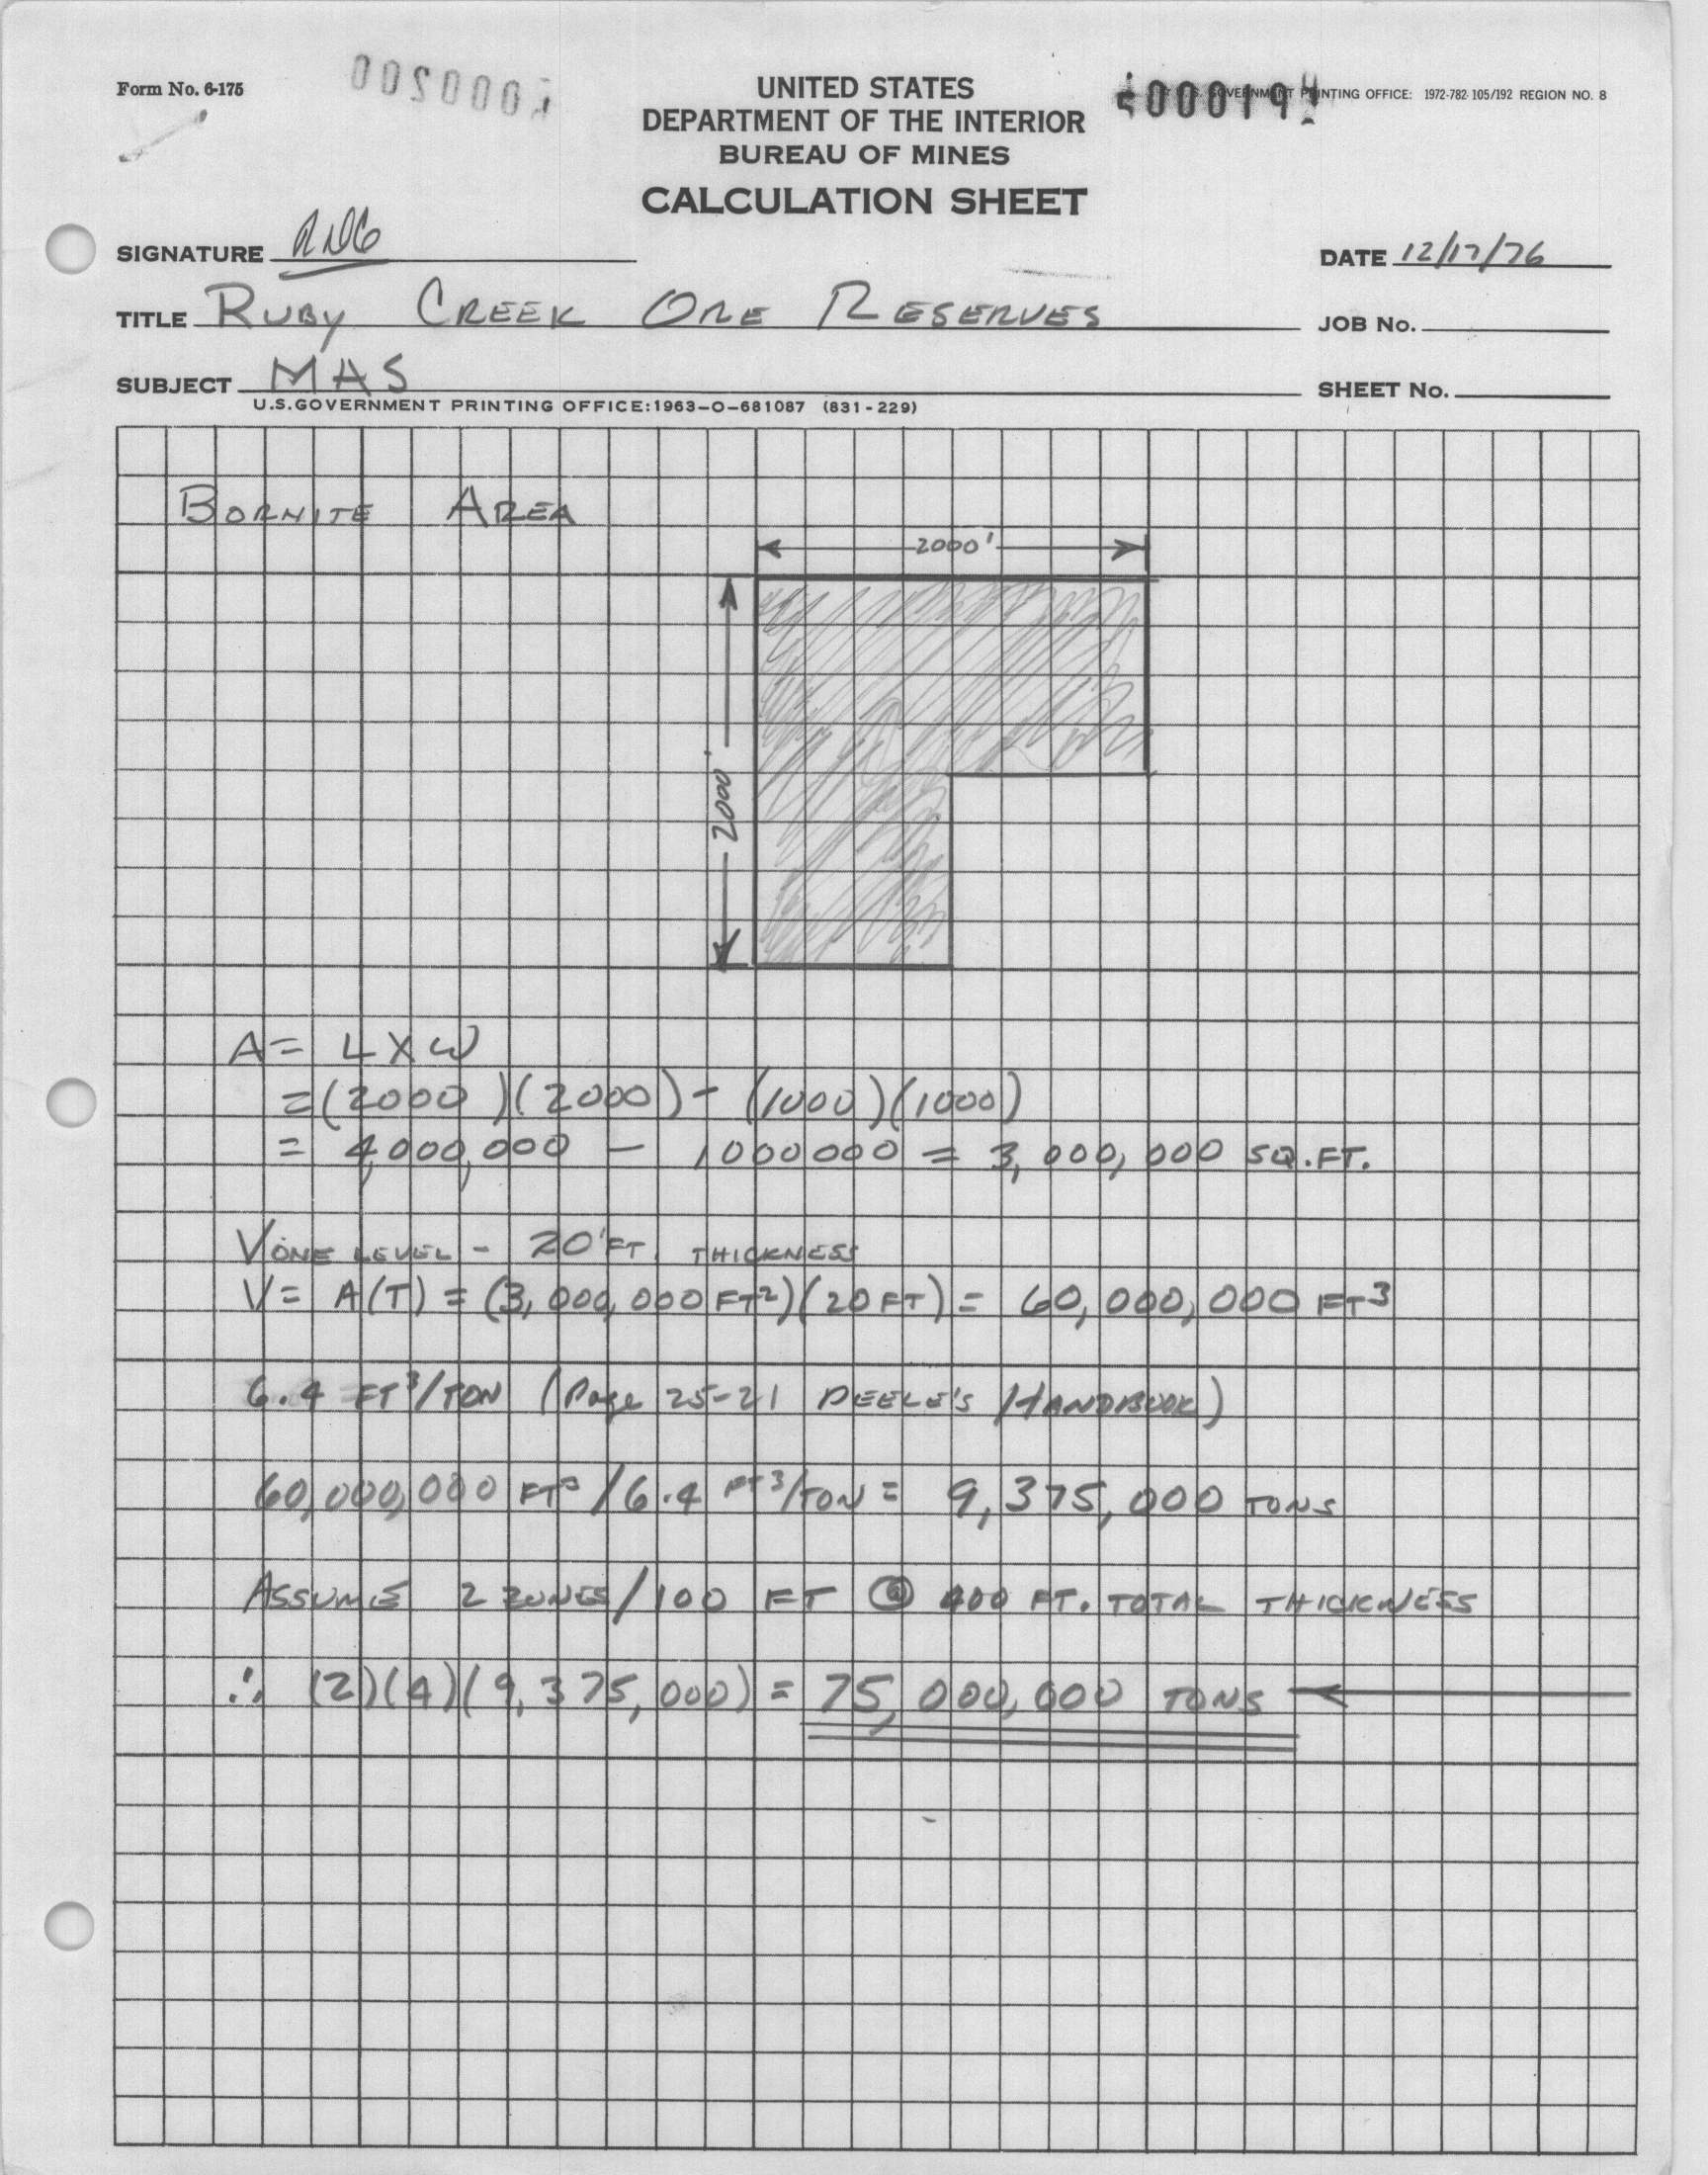 Form No. 6-175
0020000
UNITED STATES
DEPARTMENT OF THE INTERIOR
BUREAU OF MINES
CALCULATION SHEET
000019
GOVERNMENT PRINTING OFFICE: 1972-782-105/192 REGION NO. 8
SIGNATURE
DATE 12/17/76
TITLE RUBY CREEK ORE RESERVES
JOB No.
SUBJECT MAS
SHEET No.
U.S.GOVERNMENT PRINTING OFFICE:1963-O-681087 (831-229)
BORNITE AREA
2000'
2000'
A = L X W
= (2000)(2000) - (1000)(1000)
= 4,000,000 - 1000000 = 3,000,000 SQ.FT.
V ONE LEVEL - 20' FT. THICKNESS
V = A(T) = (3,000,000 FT²)(20 FT) = 60,000,000 FT³
6.4 FT³/TON (Page 25-21 PEELE'S HANDBOOK)
60,000,000 FT³/6.4 FT³/TON = 9,375,000 TONS
ASSUME 2 ZONES/100 FT @ 400 FT. TOTAL THICKNESS
∴ (2)(4)(9,375,000) = 75,000,000 TONS